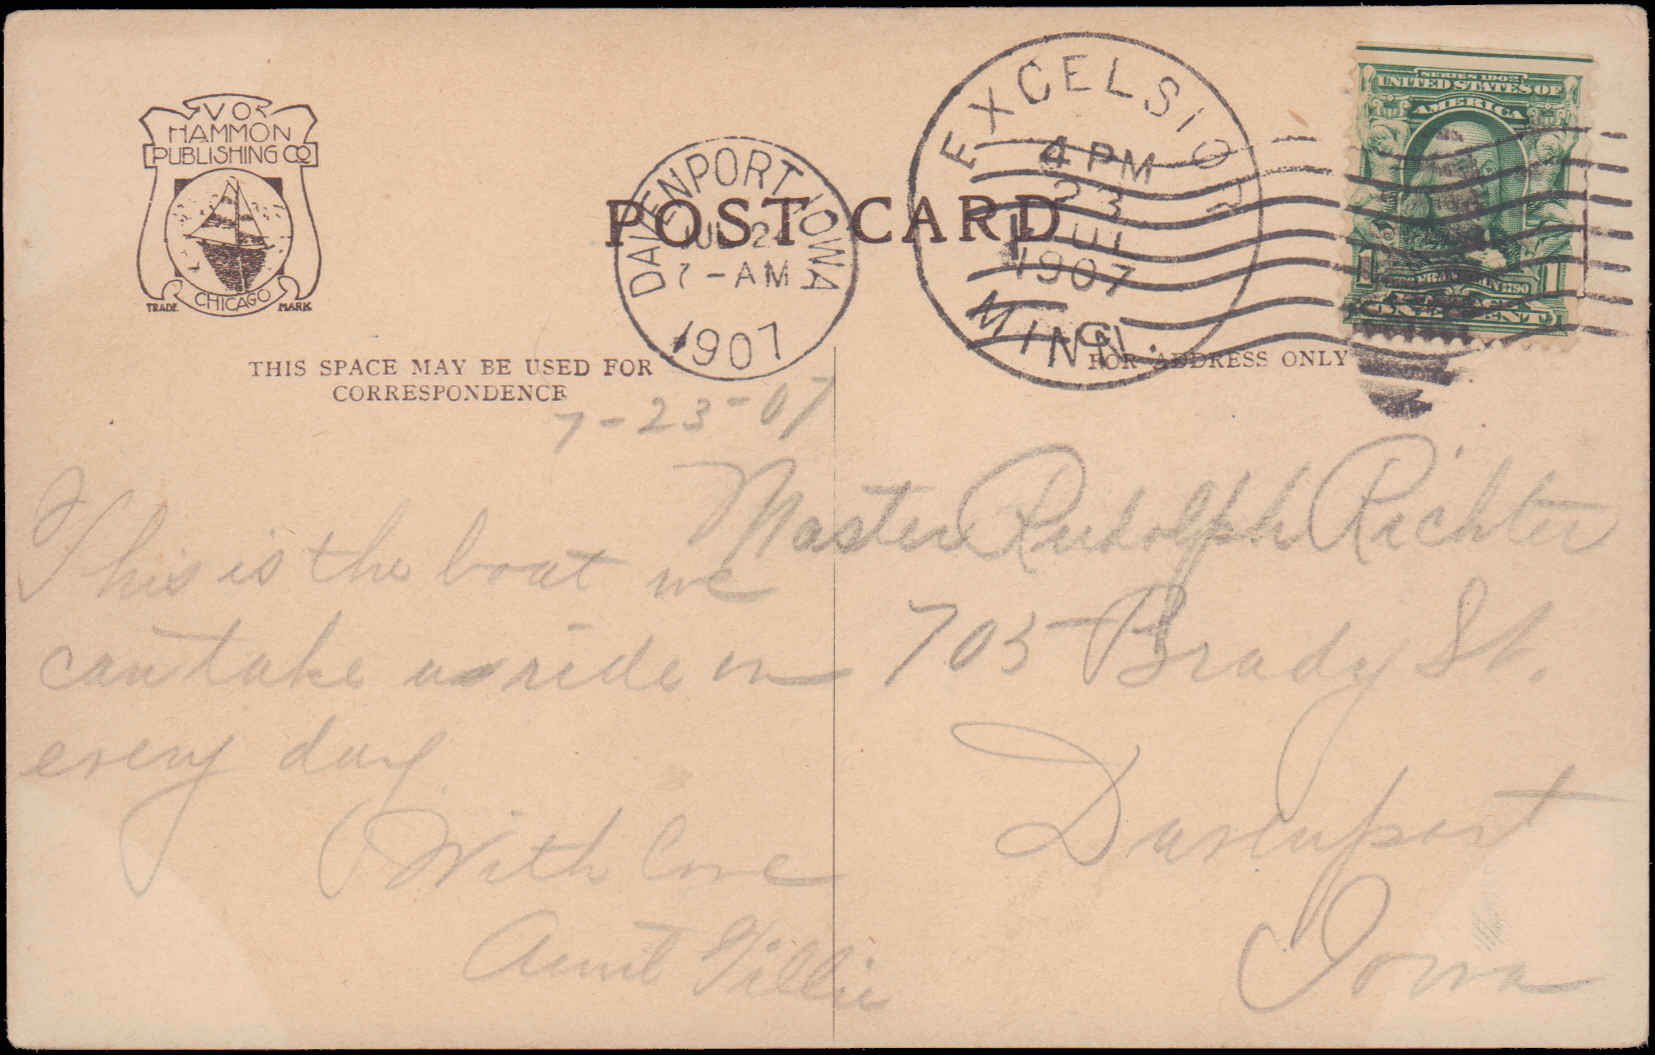 V O
HAMMON
PUBLISHING CO
CHICAGO
TRADE MARK
DAVENPORT, IOWA
JUL 24
7-AM
1907
EXCELSIOR
4 PM
23
JUL
1907
MINN.
SERIES 1902
UNITED STATES OF
AMERICA
1 1
ONE CENT
POST CARD
THIS SPACE MAY BE USED FOR
CORRESPONDENCE
FOR ADDRESS ONLY
7-23-07
This is the boat we
can take a ride on
every day
With love
Aunt Tillie
Master Rudolph Richter
703 Brady St.
Davenport
Iowa